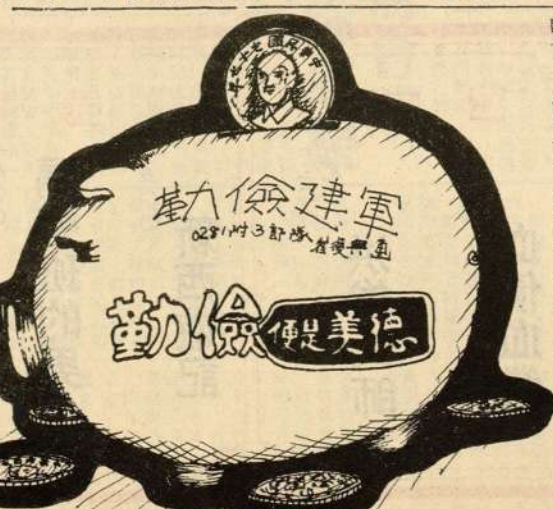 中華民國七十七年
勤儉建軍
0281附3部隊 崔復興画
勤儉便是美德